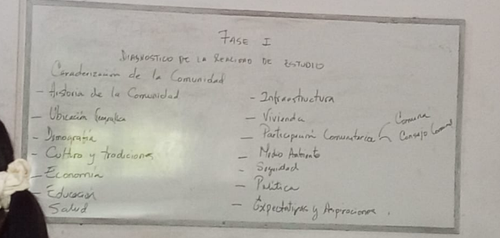 FASE I
DIAGNOSTICO DE LA REALIDAD DE ESTUDIO
Caracterización de la Comunidad
- Historia de la Comunidad
- Ubicación Geográfica
- Demografía
- Cultura y tradiciones
- Economía
- Educación
- Salud
- Infraestructura
- Vivienda
- Participación Comunitaria
Comuna
Consejo Comunal
- Medio Ambiente
- Seguridad
- Política
- Expectativas y Aspiraciones.